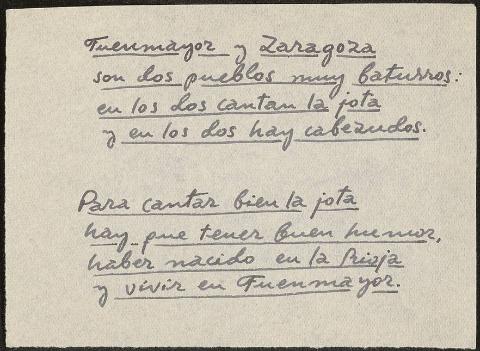 Fuenmayor y Zaragoza
son dos pueblos muy baturros:
en los dos cantan la jota
y en los dos hay cabezudos.
Para cantar bien la jota
hay que tener buen humor,
haber nacido en la Rioja
y vivir en Fuenmayor.